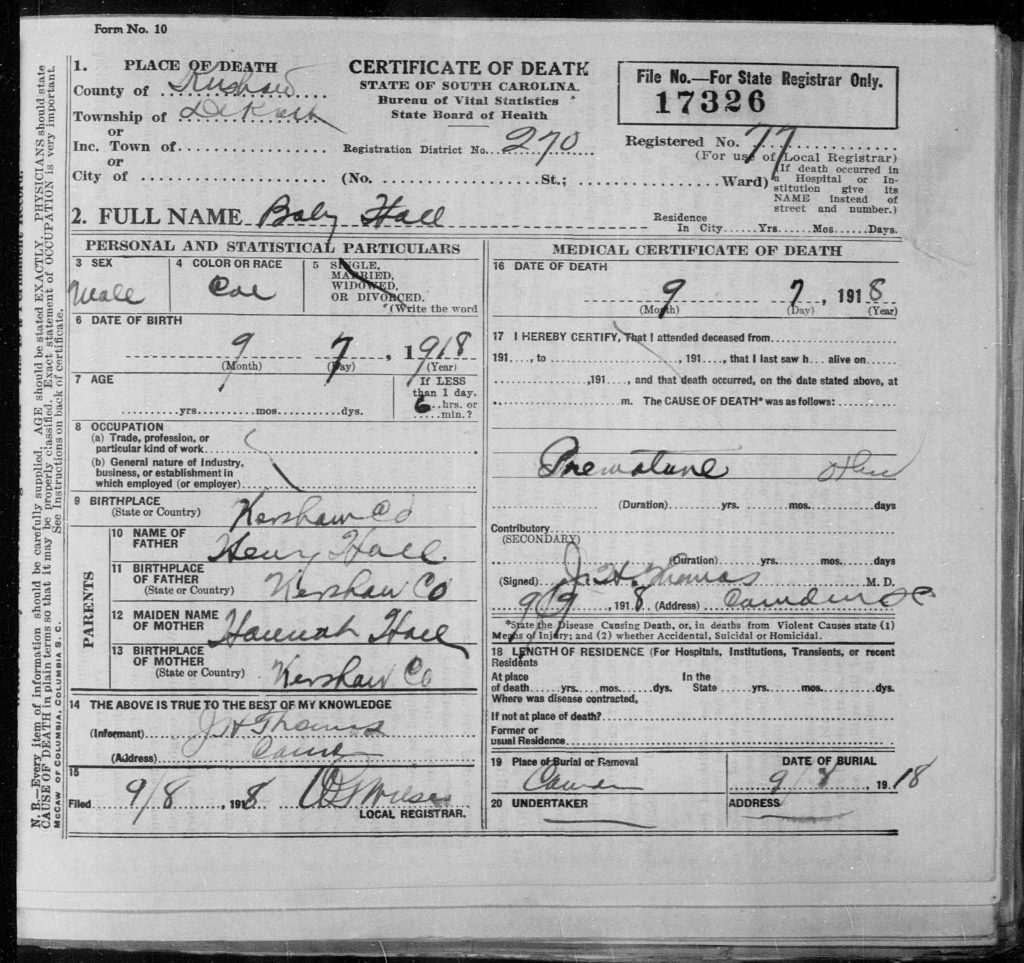 Form No. 10
1. PLACE OF DEATH
County of Kershaw
Township of DeKalb
or
Inc. Town of
or
City of
CERTIFICATE OF DEATH
STATE OF SOUTH CAROLINA.
Bureau of Vital Statistics
State Board of Health
Registration District No. 270
(No. St.; Ward)
File No.—For State Registrar Only.
17326
Registered No. 77
(For use of Local Registrar)
(If death occurred in
a Hospital or In-
stitution give its
NAME instead of
street and number.)
2. FULL NAME Baby Hall
Residence
In City Yrs. Mos. Days.
PERSONAL AND STATISTICAL PARTICULARS
3 SEX
Male
4 COLOR OR RACE
Col
5 SINGLE,
MARRIED,
WIDOWED,
OR DIVORCED.
(Write the word
6 DATE OF BIRTH
9 7, 1918
(Month) (Day) (Year)
7 AGE
yrs. mos. dys.
If LESS
than 1 day.
6 hrs. or
min.?
8 OCCUPATION
(a) Trade, profession, or
particular kind of work
(b) General nature of Industry,
business, or establishment in
which employed (or employer)
9 BIRTHPLACE
(State or Country) Kershaw Co
PARENTS
10 NAME OF
FATHER Henry Hall.
11 BIRTHPLACE
OF FATHER
(State or Country) Kershaw Co
12 MAIDEN NAME
OF MOTHER Hannah Hall
13 BIRTHPLACE
OF MOTHER
(State or Country) Kershaw Co
14 THE ABOVE IS TRUE TO THE BEST OF MY KNOWLEDGE
(Informant) J H Thomas
(Address)
15
Filed 9/8, 1918
LOCAL REGISTRAR.
MEDICAL CERTIFICATE OF DEATH
16 DATE OF DEATH
9 7, 1918
(Month) (Day) (Year)
17 I HEREBY CERTIFY, That I attended deceased from
191, to , 191, that I last saw h alive on
,191, and that death occurred, on the date stated above, at
m. The CAUSE OF DEATH* was as follows:
Premature
(Duration) yrs. mos. days
Contributory
(SECONDARY)
(Duration) yrs. mos. days
(Signed) J. H. Thomas M. D.
9/9, 1918 (Address) Camden SC
*State the Disease Causing Death, or, in deaths from Violent Causes state (1)
Means of Injury; and (2) whether Accidental, Suicidal or Homicidal.
18 LENGTH OF RESIDENCE (For Hospitals, Institutions, Transients, or recent
Residents
At place In the
of death yrs. mos. dys. State yrs. mos. dys.
Where was disease contracted,
If not at place of death?
Former or
usual Residence
19 Place of Burial or Removal
Camden
DATE OF BURIAL
9/8 1918
20 UNDERTAKER
ADDRESS
N. B.—Every item of information should be carefully supplied. AGE should be stated EXACTLY. PHYSICIANS should state
CAUSE OF DEATH in plain terms so that it may be properly classified. Exact statement of OCCUPATION is very important.
See Instructions on back of certificate.
McCAW OF COLUMBIA, COLUMBIA S. C.